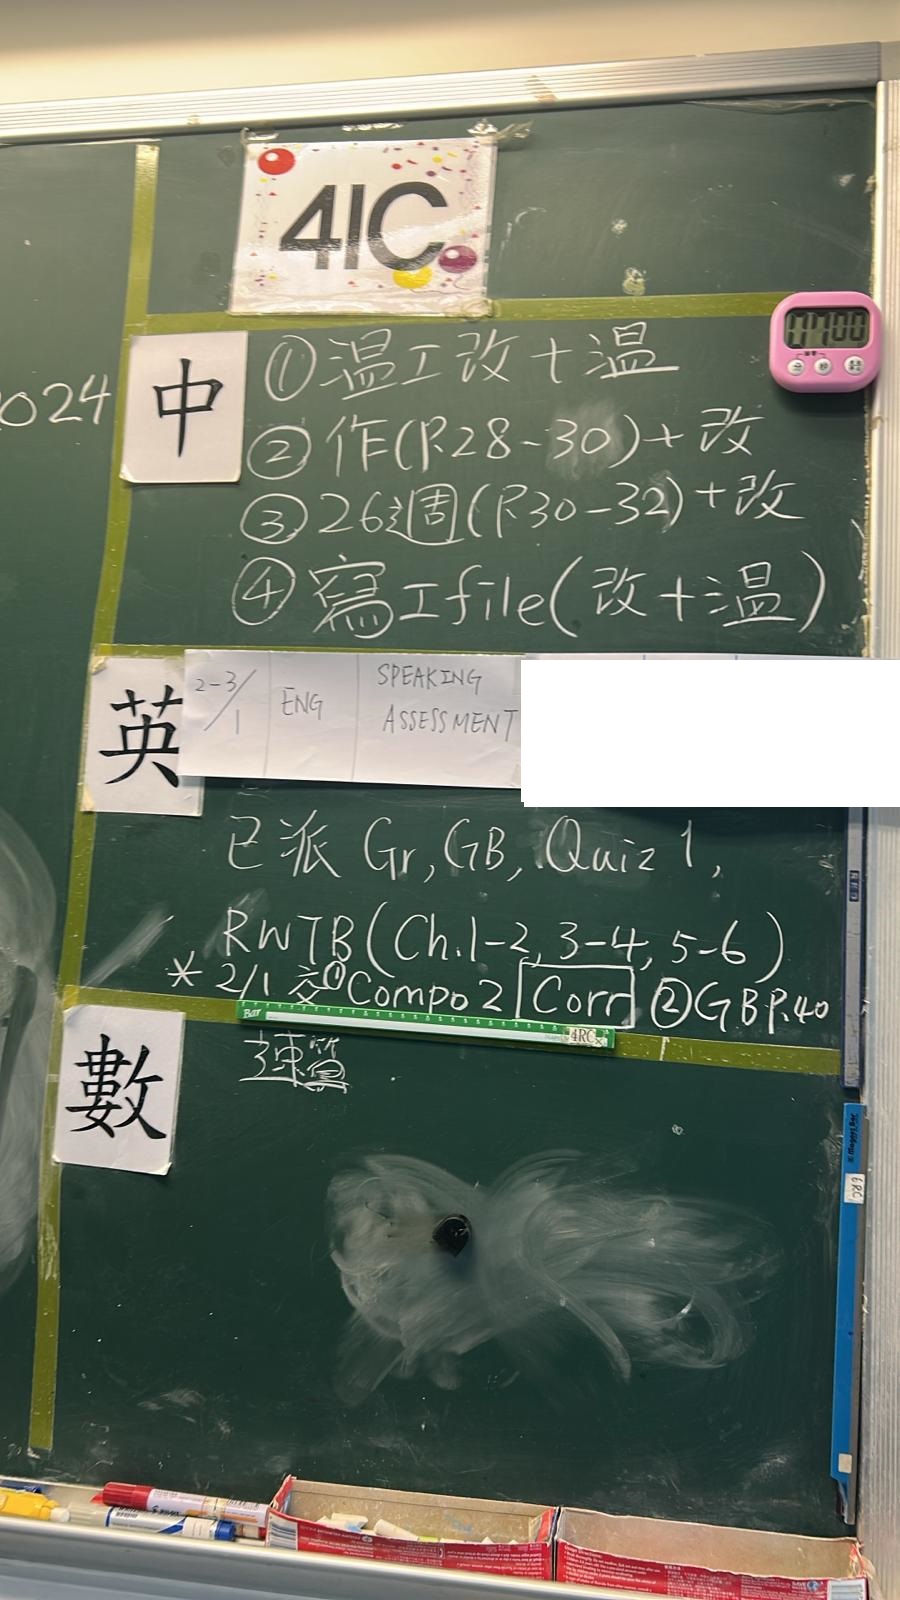 4IC
2024
中
① 温工改+温
② 作(P.28-30)+改
③ 26週(P.30-32)+改
④ 寫工file(改+温)
英
2-3/1 ENG SPEAKING ASSESSMENT
已派 Gr, GB, Quiz 1,
RWTB(Ch.1-2, 3-4, 5-6)
* 2/1 交①Compo 2 Corr ②GB P.40
Bar
4RC
數
速算
6RC